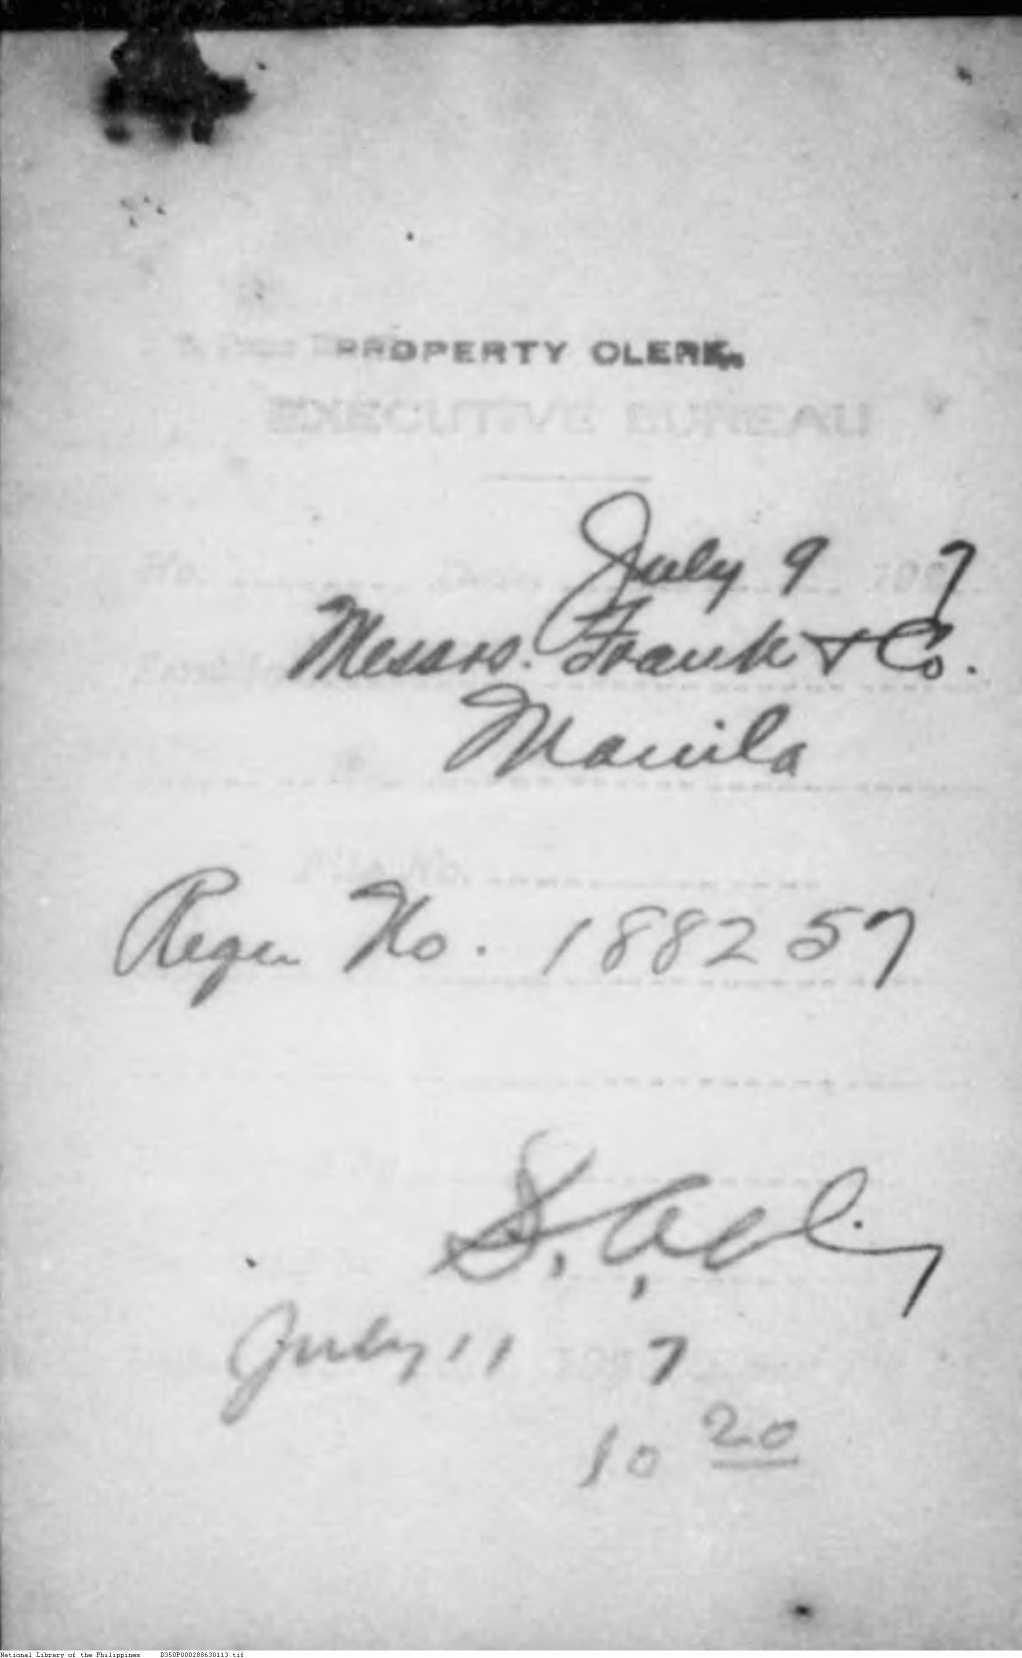 PROPERTY CLERK,
EXECUTIVE BUREAU
No. Date, July 9 1907
Messrs. Frank & Co.
Manila
File No.
No. 188257
July 11 1907
10 20
National Library of the Philippines D350P000288630113.tif